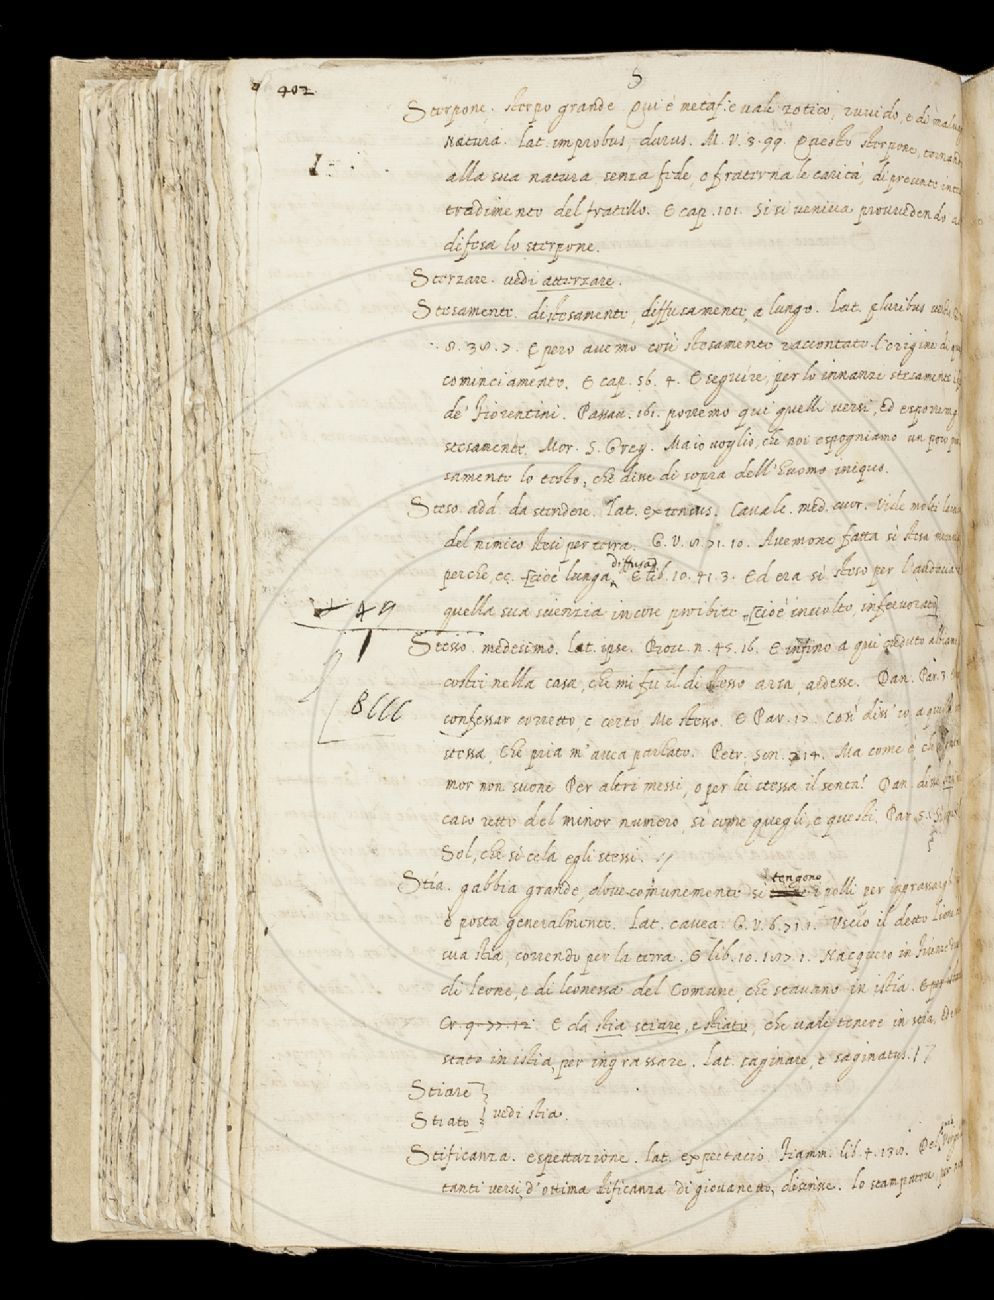 402
S
Sterpone. sterpo grande Qui è metaf: e vale zotico, ruvido, e di
natura. lat. improbus, durus. M. V. 3. 99. Questo sterpone,
alla sua natura senza fede, o fraternale carità, di presente
tradimento del fratello. E cap. 101. Si si veniva provvedendo
difesa lo sterpone.
Sterzare. vedi atterzare.
Stesamente. distesamente, diffusamente, a lungo. Lat. pluribus
8. 38. 7. E però avemo così stesamente raccontato l'origine di
cominciamento. E cap. 56. 4. E seguire, per lo innanzi stesamente
de' Fiorentini. Passau. 161. porremo qui quelli versi, ed
stesamente. Mor. S. Greg. Ma io voglio, che noi espogniamo un poco
samente lo testo, che disse di sopra dell' huomo iniquo.
Steso. add. da stendere. Lat. extensus. Cavalc. med. cuor. vide molti
del nimico stesi per terra. G. V. 8. 71. 10. Avemone fatta sì stesa
perche, ec. cioè lunga, diffusa E lib. 10. 41. 3. Ed era sì steso per
49
quella sua scienzia in core proibito cioè involto, infervorato
Stesso. medesimo. lat. ipse. Bocc. n. 45. 16. E infino a qui creduto
costei nella casa, che mi fu il di stesso arsa, ardesse. Dan. Par. 3.
8
confessar corretto, e certo Me stesso. E Par. 17. Così diss' io a
stessa, che pria m' avea parlato. Petr. Son. 214. Ma come è, ch
mor non suone Per altri messi, o per lei stessa il senta? Dan. disse
caso retto del minor numero, si come quegli, e questi. Par. 5.
Sol, che si cela egli stessi.
Stia. gabbia grande, dove comunemente si tengono i polli per
è posta generalmente. Lat. cavea. G. V. 6. 71. 1. Uscio il detto
sua stia, correndo per la terra. E lib. 10. 187. 1. Nacquero in
di leone, e di leonessa del Comune, che stavano in istia.
Cr. 9. 77. 12. E da stia stiare, e stiato, che vale tenere in stia,
stato in istia, per ingrassare. lat. saginare, e saginatus.
Stiare
Stiato vedi stia.
Stificanza. espettazione. lat. expectatio. Fiamm. lib. 4. 138.
tanti versi, d'ottima stificanza di giovanetto, descrisse. lo stampatore